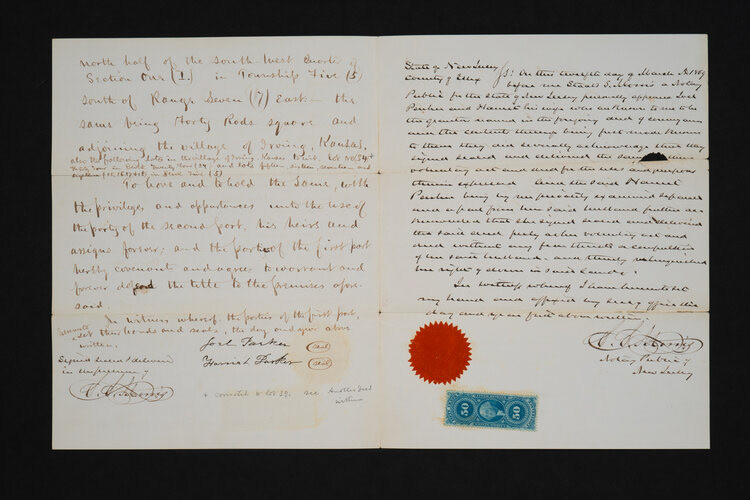 north half of the south-west Quarter of
Section One (1.) in Township Five (5)
south of Range Seven (7) East — the
same being Forty Rods square and
adjoining the village of Irving, Kansas.
also the following lots in the village of Irving Kansas to wit. Lot No 34 &
in Block (5)
To have and to hold the same, with
the privileges and appurtenances unto the use of
the party of the second part, his heirs and
assigns forever; and the parties of the first part
hereby covenant and agree to warrant and
forever defend the title to the premises afore-
said.
In witness whereof, the parties of the first part,
set their hands and seals, the day and year above
written.
Joel Parker (seal)
Signed sealed & delivered
Harriet Parker (seal)
in the presence of
+ corrected to lot 39. see Another deed
within
State of New Jersey
County of Essex } SS: On this twelfth day of March AD 1869
before me a Notary
Public for the State of New Jersey personally appeared Joel
Parker and Harriet his wife who are known to me to be
the grantors named in the foregoing deed of conveyance
and the contents thereof being first made known
to them they did severally acknowledge that they
signed sealed and delivered the same as their
voluntary act and deed for the uses and purposes
therein expressed. And the said Harriet
Parker being by me privately examined separate
and apart from her said husband further
acknowledged that she signed sealed and delivered
the said deed freely as her voluntary act and
deed without any fear threats or compulsion
of her said husband and thereby relinquished
her right of dower in said lands.
In witness whereof I have hereunto set
my hand and affixed my seal of office this
day and year first above written.
Notary Public of
New Jersey
50
50